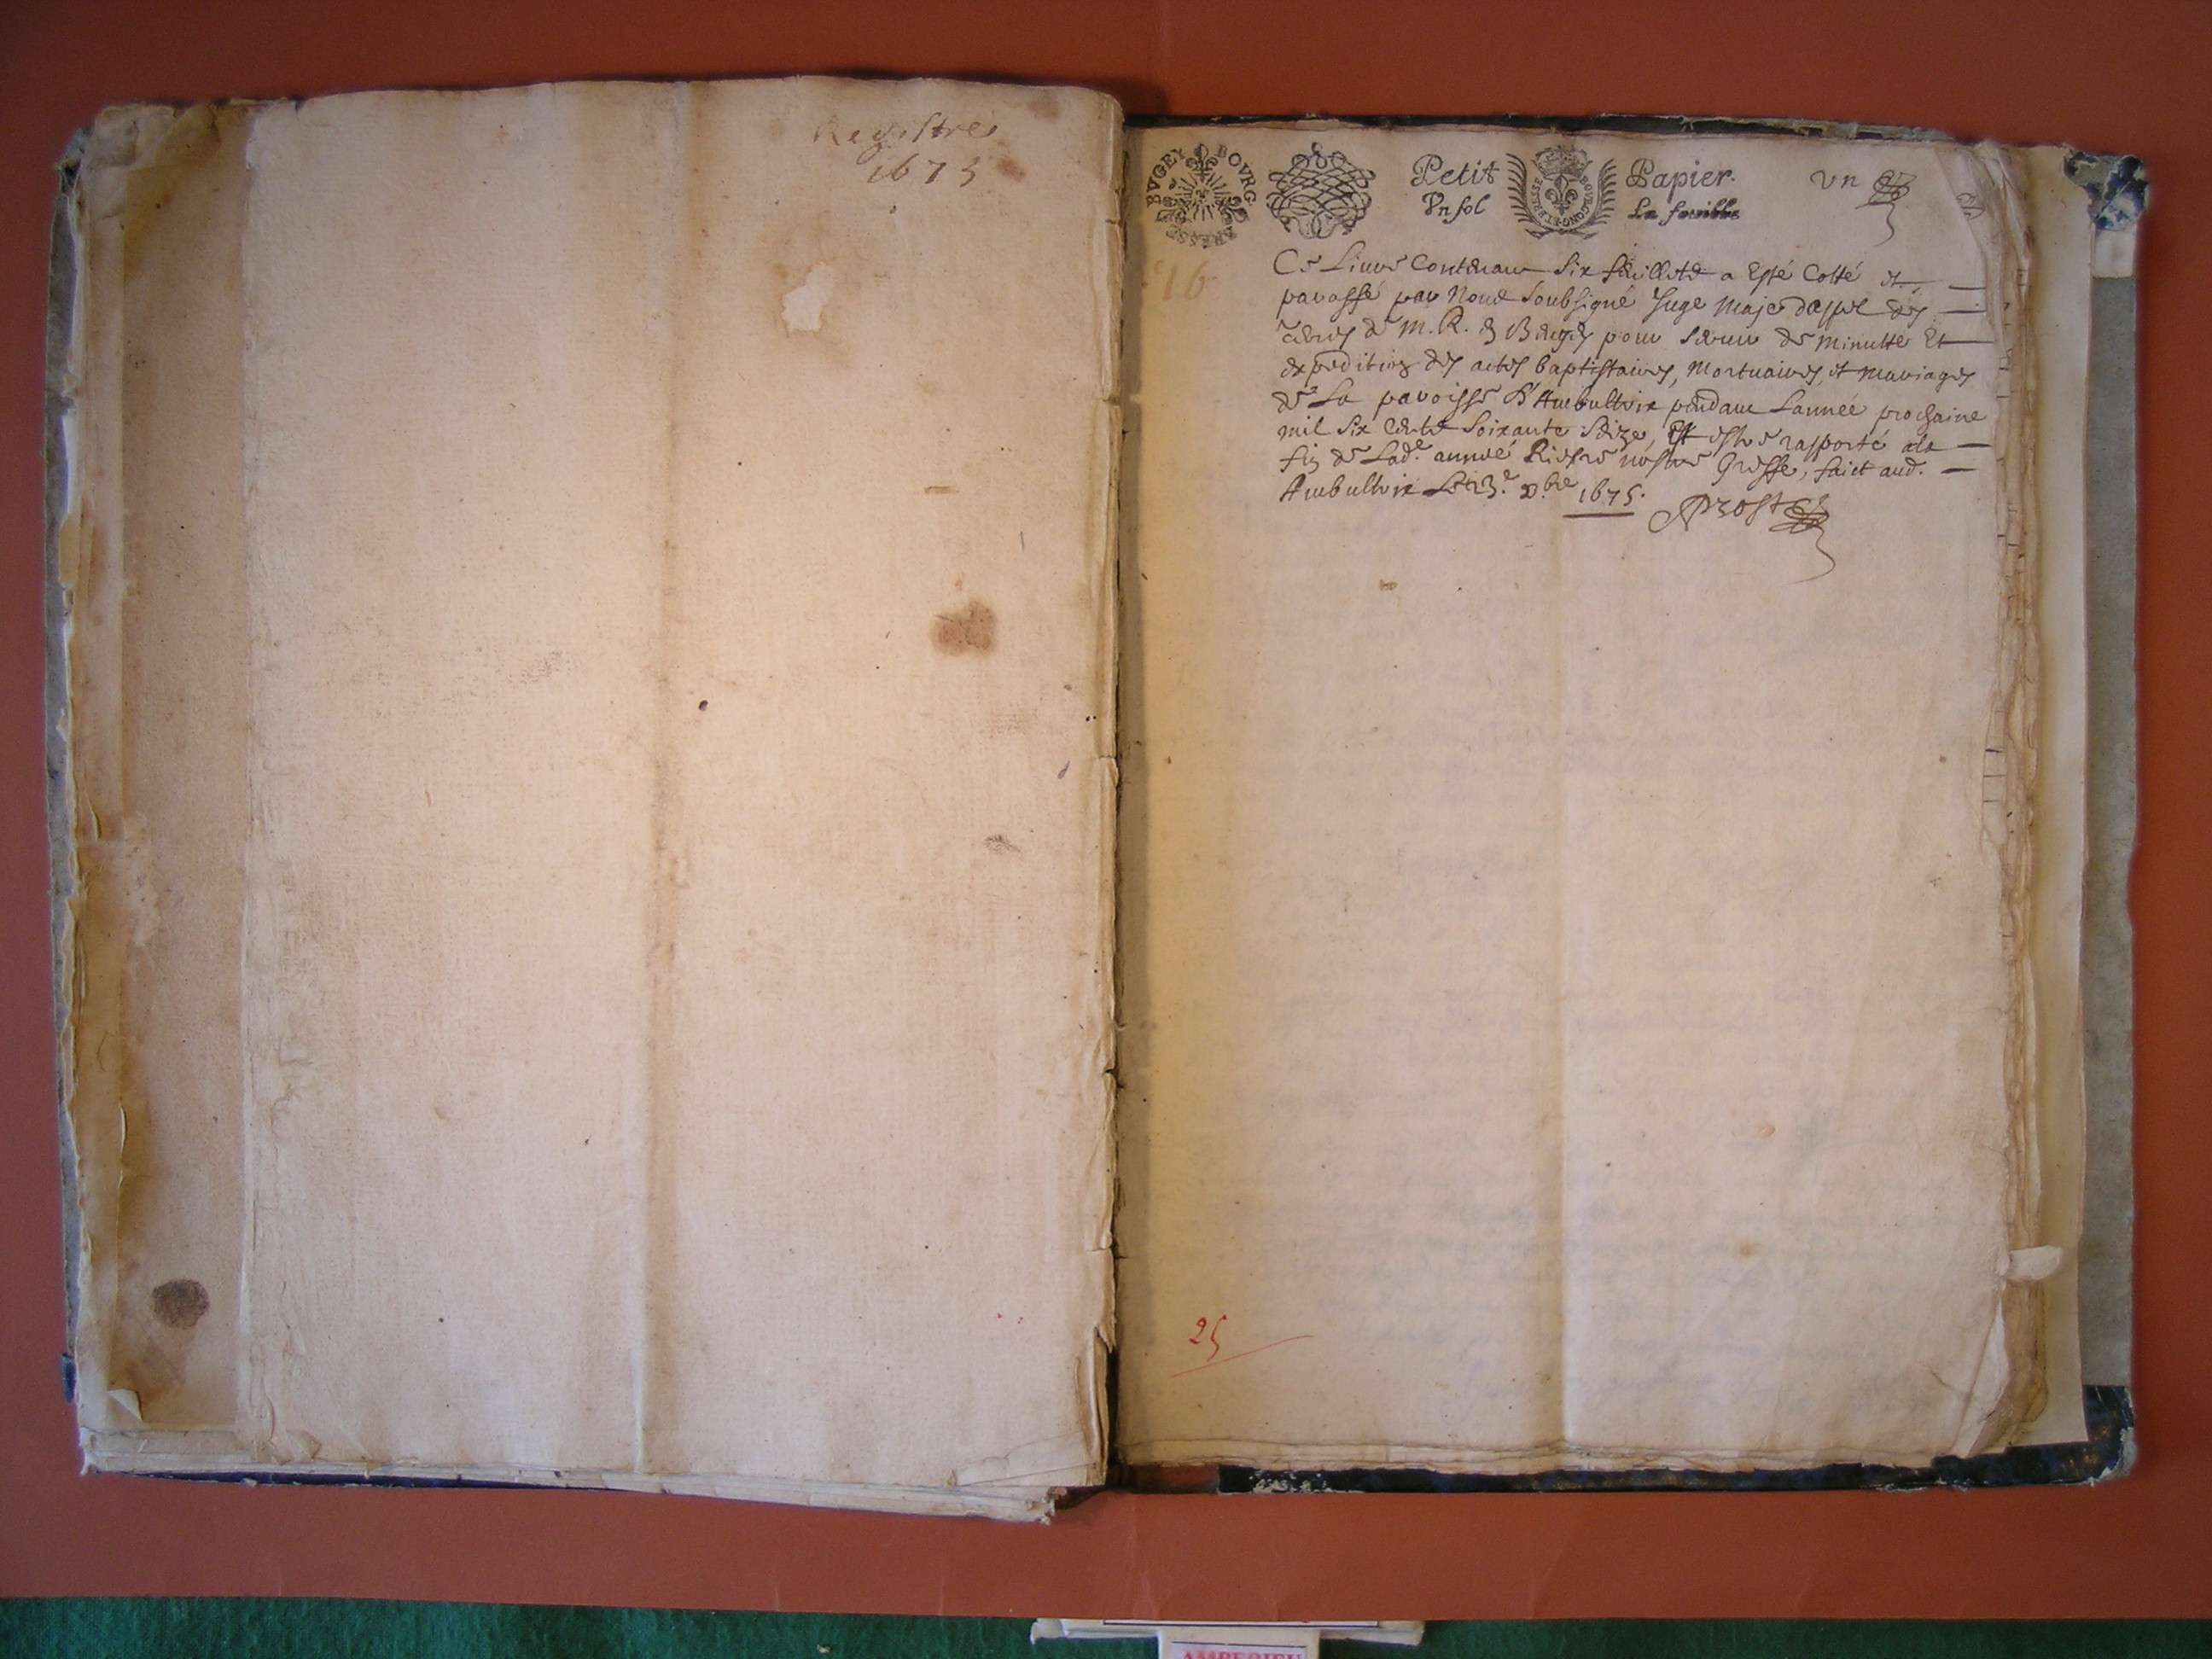 Registre
1675
BVGEY BOVRG. BRESSE
Petit Papier.
Vn sol La feuille
BOVRGONG. ET BRESSE
vn
16
Ce Liure Contenant Six feuillets a Esté Cotté et
paraffé par Nous Soubsigné Juge Maje dappel des
terres de M. R. de pour Seruir de Minutte Et
expedition des actes baptistaires, Mortuaires, et Mariages
de La paroisse d'Ambultrix pendant Lannée prochaine
mil Six Cents Soixante Seize, Et estre rapporté ala
fin de Lad.e année Riere nostre Greffe, faict aud.
Ambultrix Le 23.e xbre 1675.
Prost
25
AMBERIEU